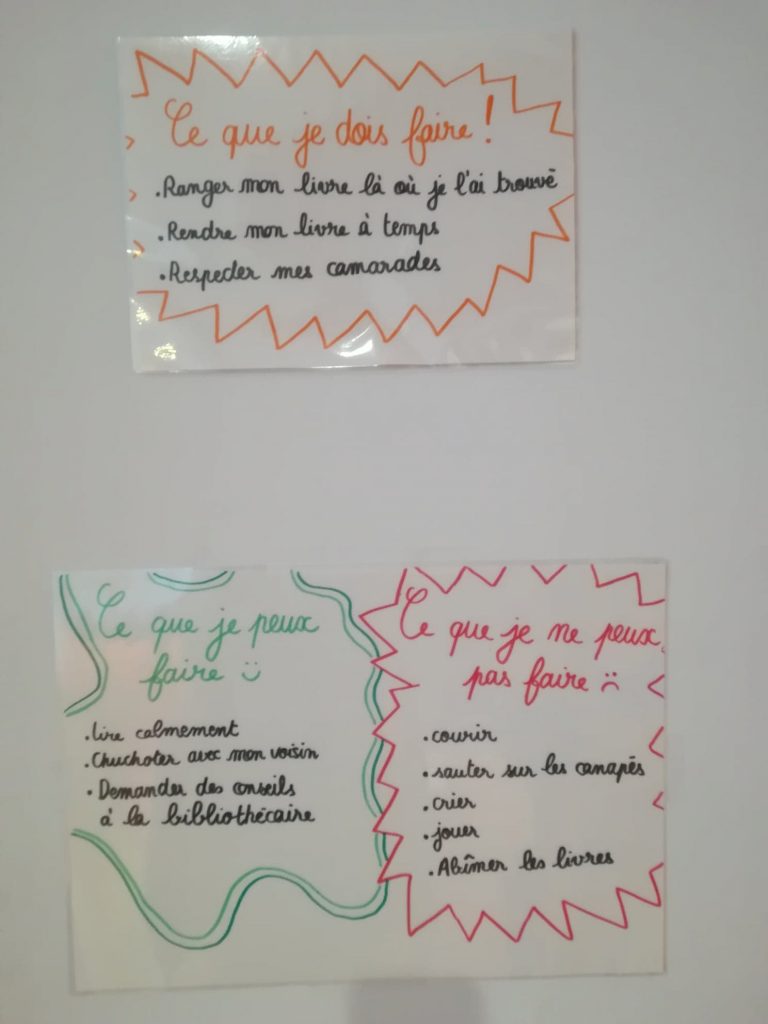 Ce que je dois faire !
. Ranger mon livre là où je l'ai trouvé
. Rendre mon livre à temps
. Respecter mes camarades
Ce que je peux
faire :)
. Lire calmement
. Chuchoter avec mon voisin
. Demander des conseils
à la bibliothécaire
Ce que je ne peux
pas faire :(
. courir
. sauter sur les canapés
. crier
. jouer
. Abîmer les livres